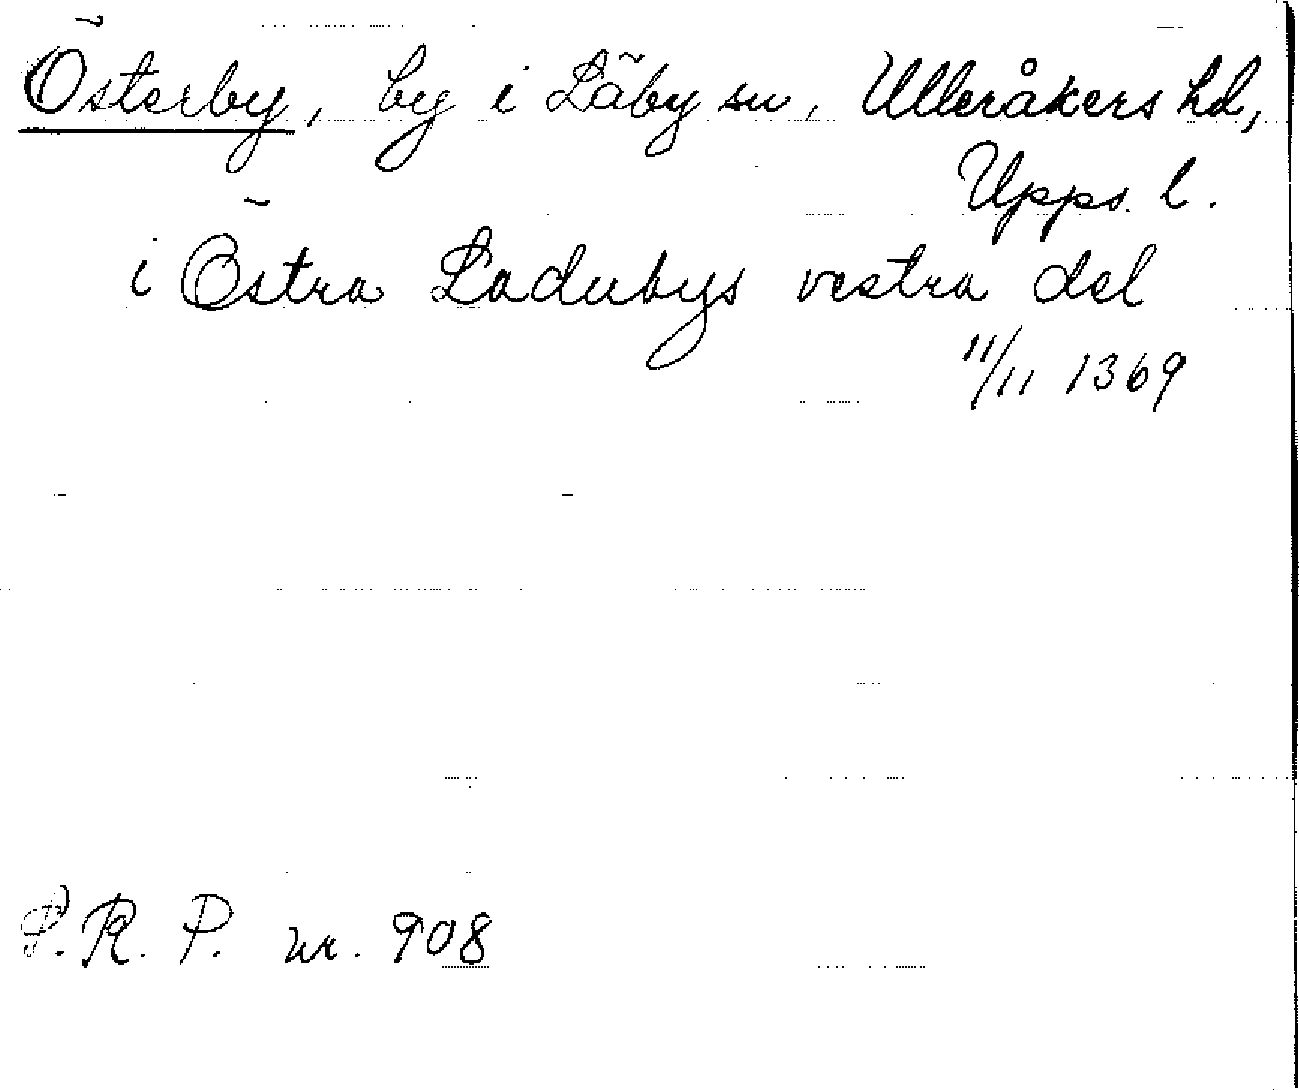 Österby, by i Läby sn, Ulleråkers hd,
Upps. l.
i Östra Ladubys vestra del
11/11 1369
S.R.P. nr. 908